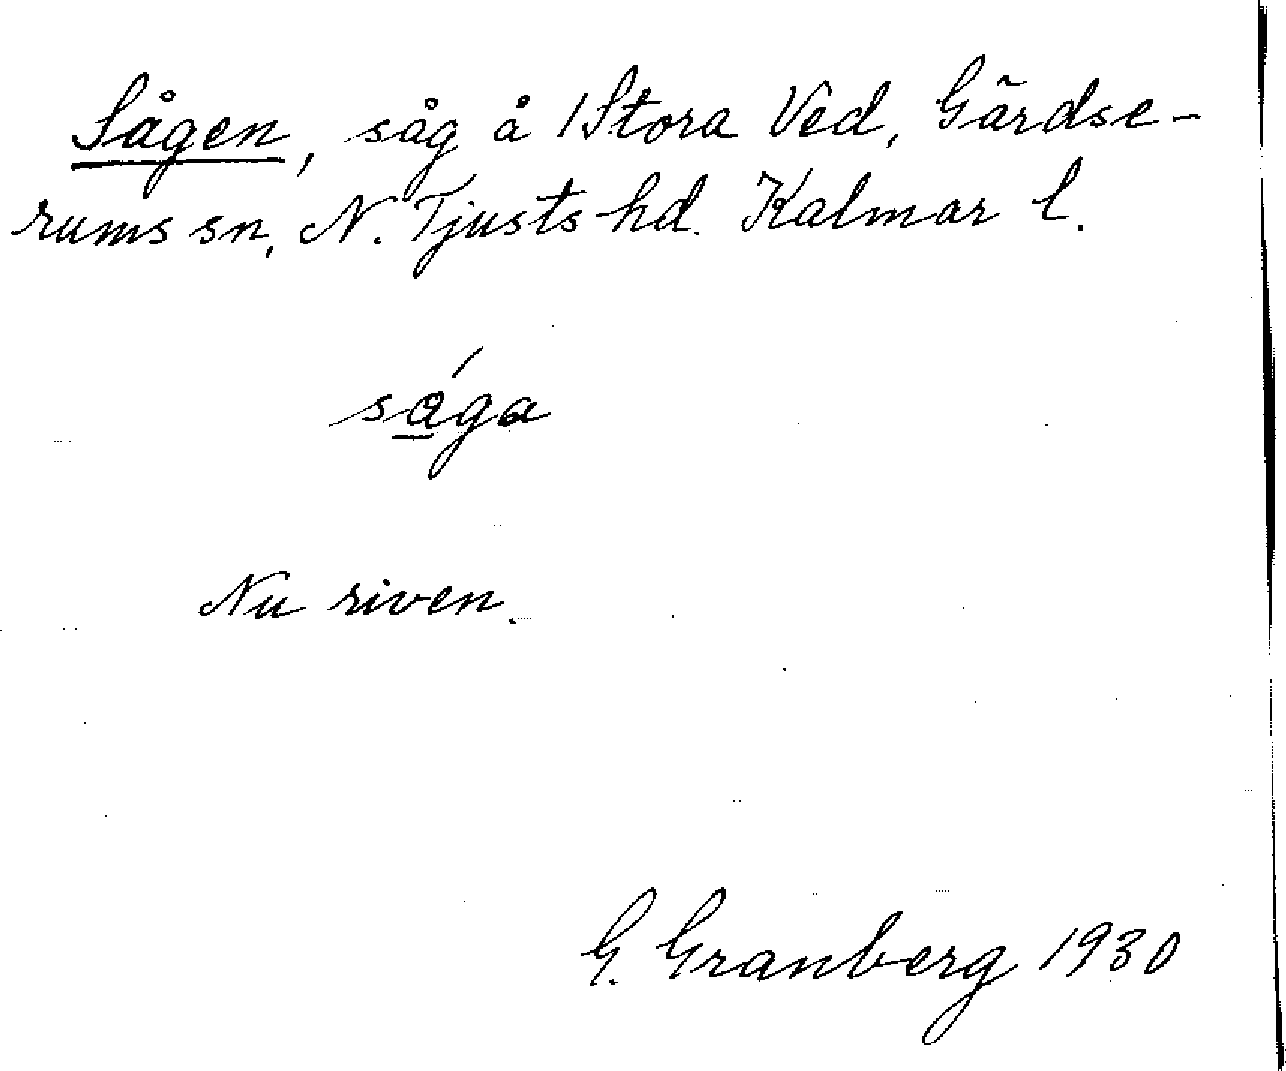 Sågen, såg å Stora Ved, Gärdse-
rums sn, N. Tjusts hd. Kalmar l.
sága
Nu riven.
G. Granberg 1930